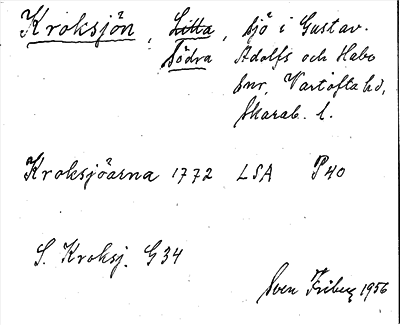 Kroksjön, Litla, sjö i Gustav.
Södra Adolfs och Habo
snr, Vartofta hd,
Skarab. l.
Kroksjöarna 1772 LSA P40
S. Kroksj. G34
Sven Friberg 1956